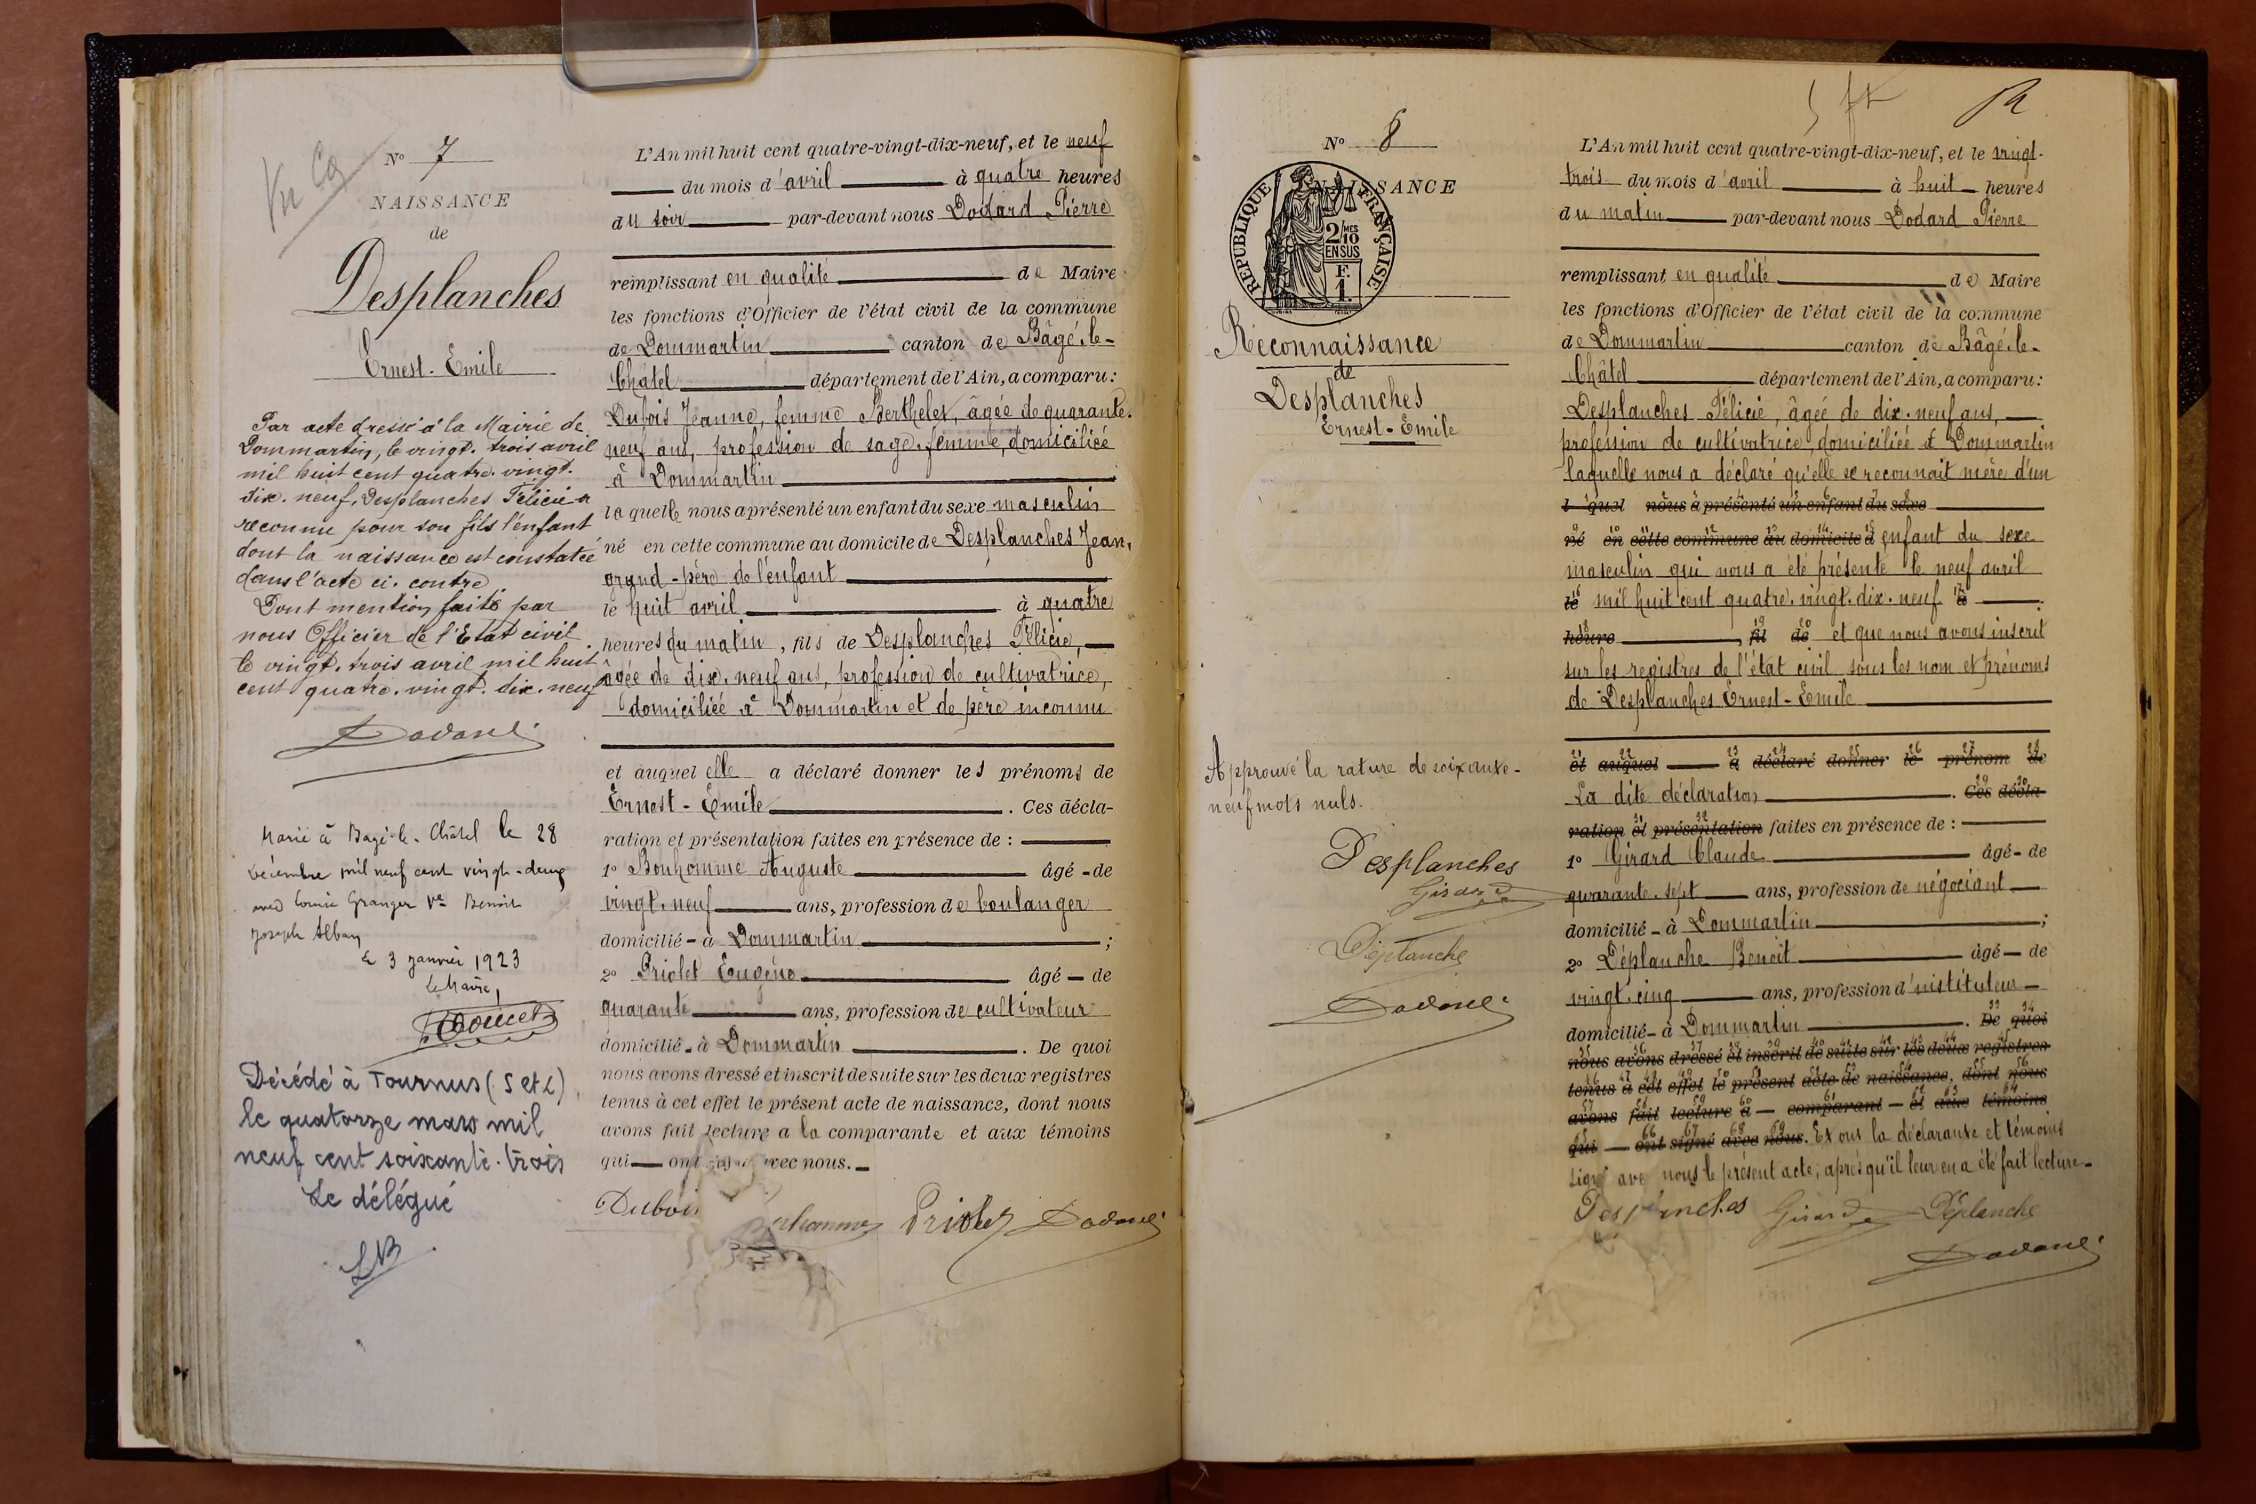 Nº 7
NAISSANCE
de
Desplanches
Ernest-Emile
Par acte dressé à la Mairie de
Dommartin, le vingt-trois avril
mil huit cent quatre-vingt-
dix-neuf, Desplanches Félicie a
reconnu pour son fils l'enfant
dont la naissance est constatée
dans l'acte ci-contre
Dont mention faite par
nous Officier de l'Etat civil
le vingt-trois avril mil huit
cent quatre-vingt-dix-neuf
Dodard
Marié à Bagé-le-Châtel le 28
Décembre mil neuf cent vingt-deux
avec Granger Vve Benoit
Joseph Alban
le 3 janvier 1923
Le Maire,
Décédé à Tournus (S et L)
le quatorze mars mil
neuf cent soixante-trois
Le délégué
L'An mil huit cent quatre-vingt-dix-neuf, et le neuf
du mois d'avril à quatre heures
du soir par-devant nous Dodard Pierre
remplissant en qualité de Maire
les fonctions d'Officier de l'état civil de la commune
de Dommartin canton de Bâgé-le-
Châtel département de l'Ain, a comparu:
Dubois Jeanne, femme Berthelet, âgée de quarante-
neuf ans, profession de sage-femme, domiciliée
à Dommartin
laquelle nous a présenté un enfant du sexe masculin
né en cette commune au domicile de Desplanches Jean,
grand-père de l'enfant
le huit avril à quatre
heures du matin, fils de Desplanches Félicie,
âgée de dix-neuf ans, profession de cultivatrice,
domiciliée à Dommartin et de père inconnu
et auquel elle a déclaré donner les prénoms de
Ernest-Emile. Ces décla-
ration et présentation faites en présence de:
1º Bonhomme Auguste âgé-de
vingt-neuf ans, profession de boulanger
domicilié-à Dommartin;
2º Priolet Eugène âgé-de
quarante ans, profession de cultivateur
domicilié-à Dommartin. De quoi
nous avons dressé et inscrit de suite sur les deux registres
tenus à cet effet le présent acte de naissance, dont nous
avons fait lecture a la comparante et aux témoins
qui ont avec nous.
Dubois Priolet Dodard
Nº 8
NAISSANCE
REPUBLIQUE FRANÇAISE
2/10 MES
EN SUS
F.
1.
Reconnaissance
de
Desplanches
Ernest-Emile
Approuvé la rature de soixante-
neuf mots nuls.
Desplanches
Girard
Déplanche
Dodard
L'An mil huit cent quatre-vingt-dix-neuf, et le vingt-
trois du mois d'avril à huit heures
du matin par-devant nous Dodard Pierre
remplissant en qualité de Maire
les fonctions d'Officier de l'état civil de la commune
de Dommartin canton de Bâgé-le-
Châtel département de l'Ain, a comparu:
Desplanches Félicie, âgée de dix-neuf ans,
profession de cultivatrice, domiciliée à Dommartin
laquelle nous a déclaré qu'elle se reconnait mère d'un
l quel nous a présenté un enfant du sexe
né en cette commune au domicile d enfant du sexe
masculin qui nous a été présenté le neuf avril
le mil huit cent quatre-vingt-dix-neuf à
heure, fil de et que nous avons inscrit
sur les registres de l'état civil sous les nom et prénoms
de Desplanches Ernest-Emile
et auquel a déclaré donner le prénom de
La dite déclaration. Ces décla-
ration et présentation faites en présence de:
1º Girard Claude âgé-de
quarante-sept ans, profession de négociant
domicilié-à Dommartin;
2º Déplanche Benoit âgé-de
vingt-cinq ans, profession d'instituteur
domicilié-à Dommartin. De quoi
nous avons dressé et inscrit de suite sur les deux registres
tenus à cet effet le présent acte de naissance, dont nous
avons fait lecture a comparant et aux témoins
qui ont signé avec nous. Et ont la déclarante et témoins
signé avec nous le présent acte, après qu'il leur en a été fait lecture.
Desplanches Girard Déplanche
Dodard